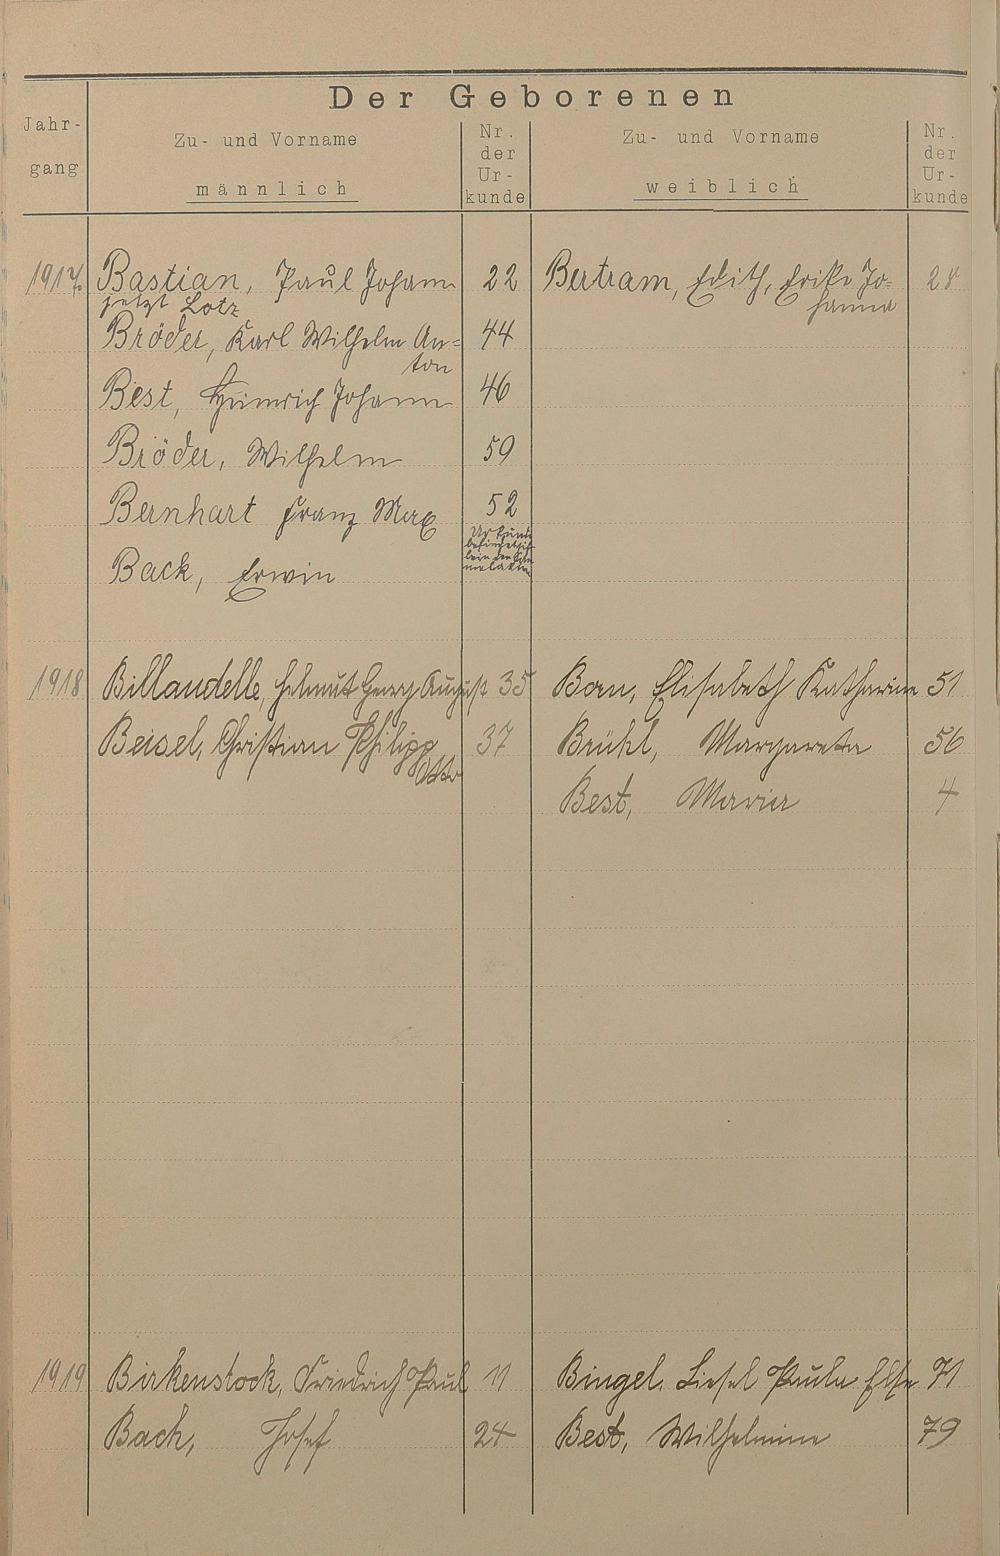 Der Geborenen
Jahr-
gang
Zu- und Vorname
männlich
Nr.
der
Ur-
kunde
Zu- und Vorname
weiblich
Nr.
der
Ur-
kunde
1917. Bastian, Paul Johann 22 Bertram, Edith, Erika Jo-
jetzt Lotz hanna 28
Bröder, Karl Wilhelm An= 44
ton
Best, Heinrich Johann 46
Bröder, Wilhelm 59
Bernhart Franz Max 52
Back, Erwin Urkunde
befindet sich
1918 Billaudelle, Helmut Georg August 35 Born, Elisabeth Katharina 51
Beisel, Christian Philipp 37 Brühl, Margareta 56
Otto
Best, Maria 4
1919 Birkenstock, Friedrich Paul 11 Bingel, Liesel Paula Else 71
Bach, Josef 24 Best, Wilhelmine 79